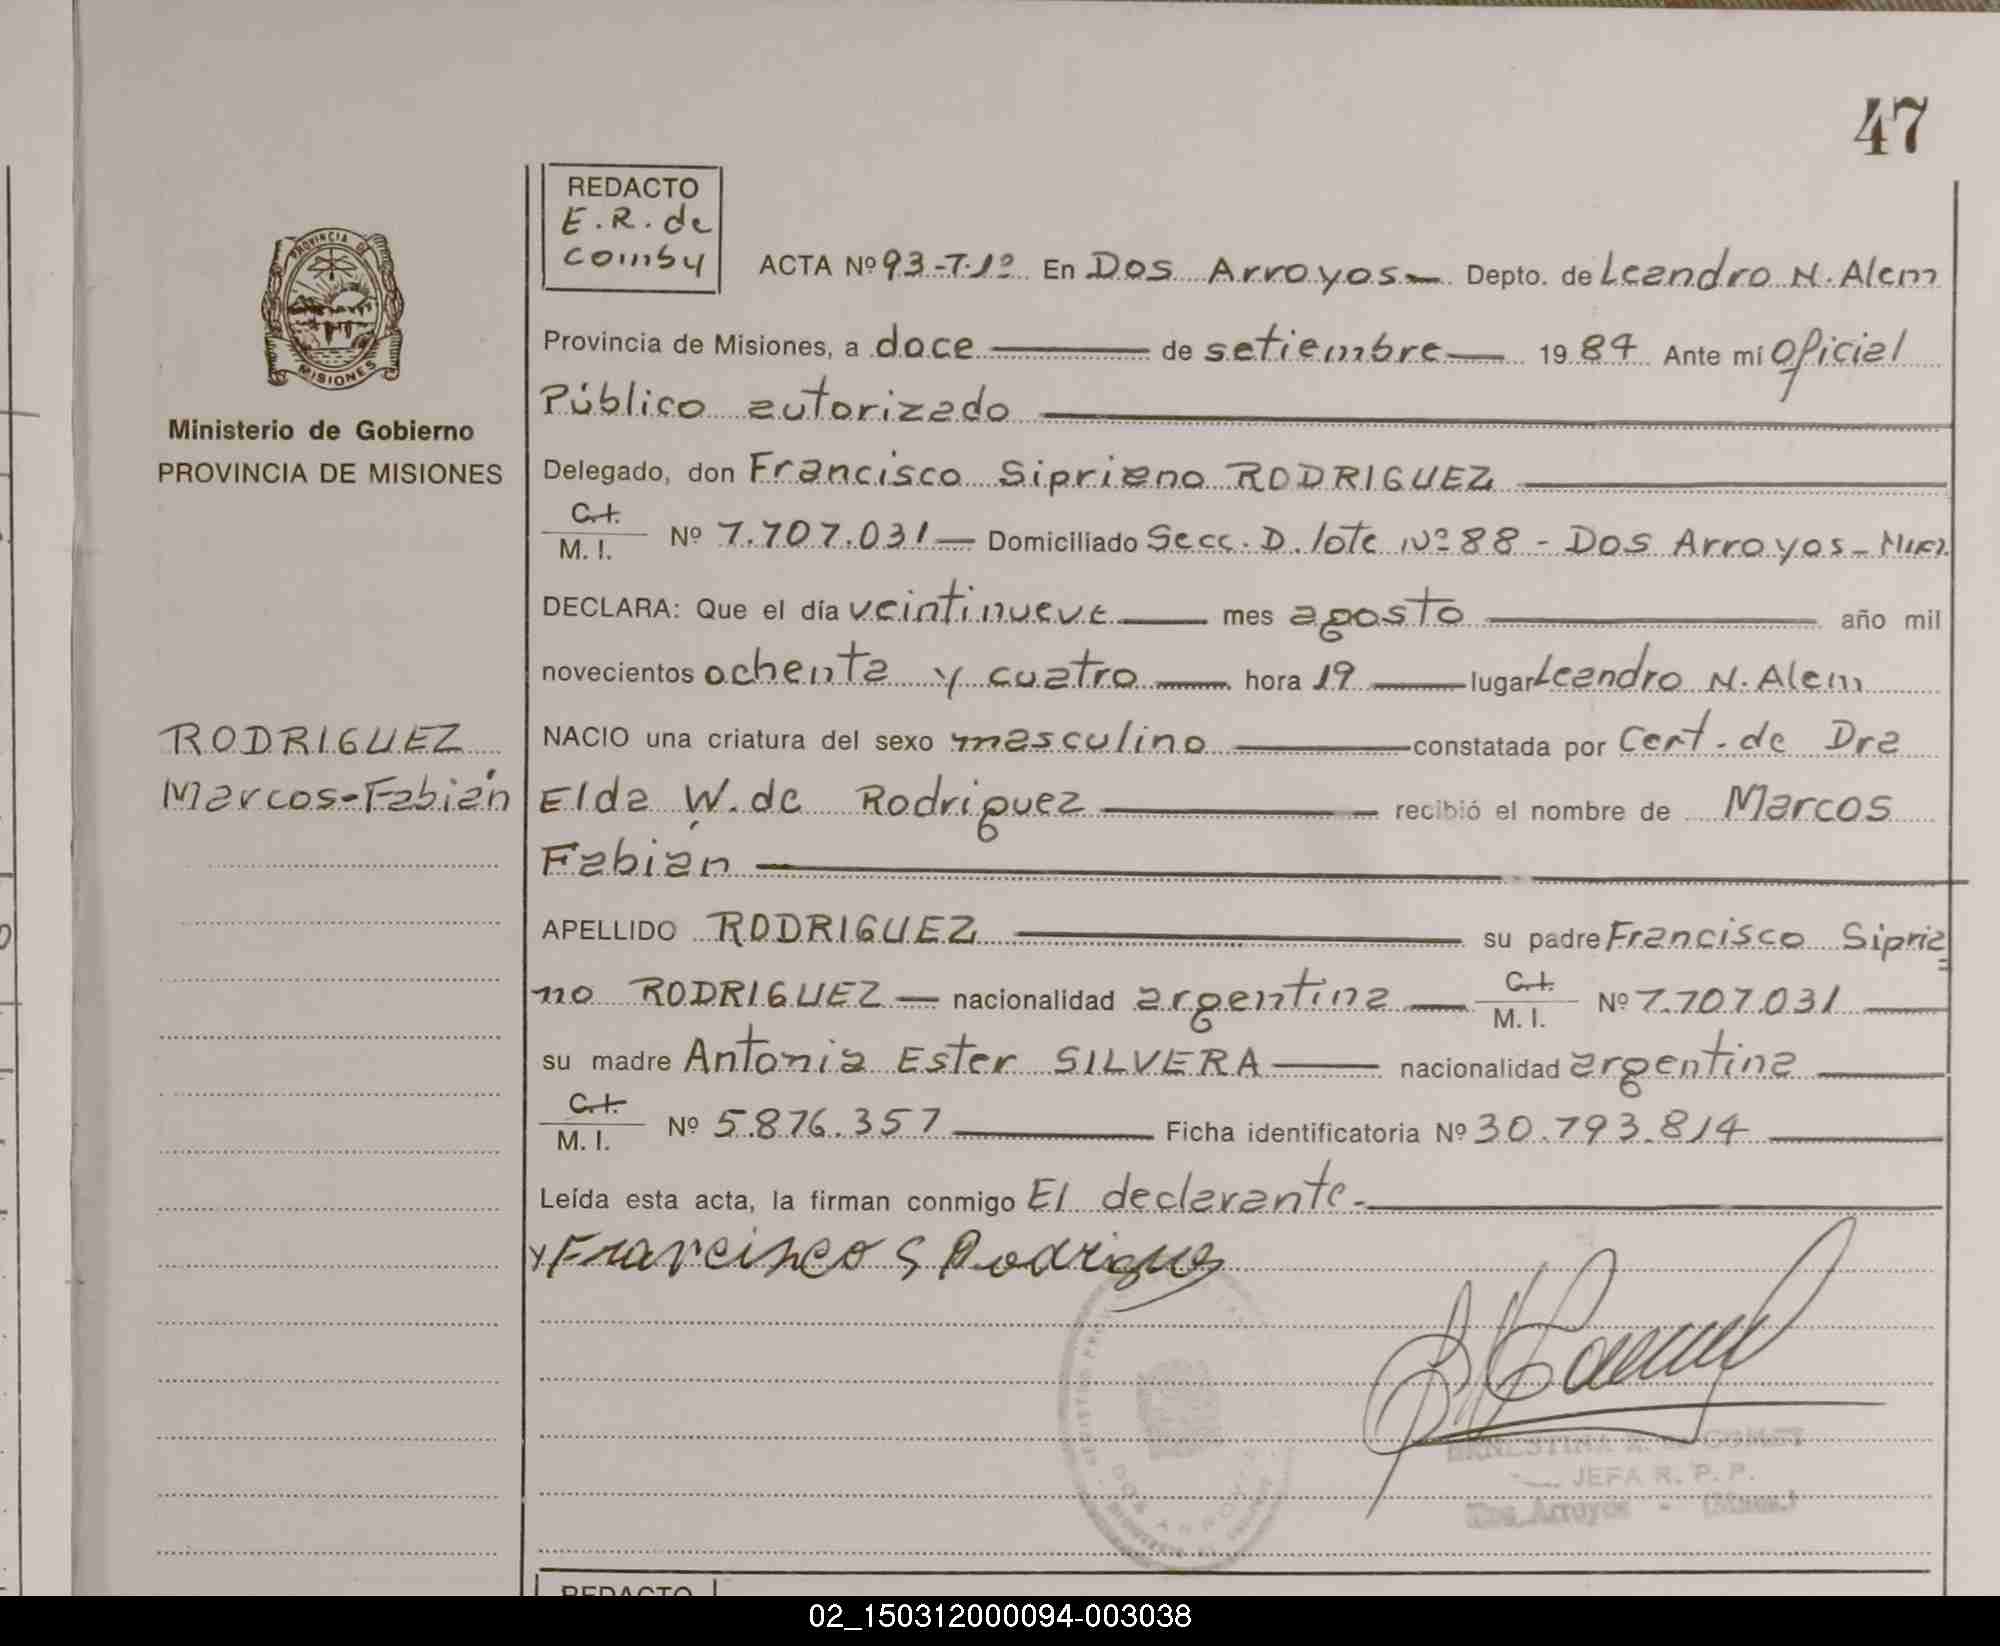 47
REDACTO
E.R. de
PROVINCIA DE
MISIONES
Ministerio de Gobierno
PROVINCIA DE MISIONES
ACTA Nº 93-T.1º En Dos Arroyos Depto. de Leandro N. Alem
Provincia de Misiones, a doce de setiembre 1984 Ante mí oficial
Público autorizado
Delegado, don Francisco Sipriano RODRIGUEZ
C.I.
M. I. Nº 7.707.031 Domiciliado Secc. D. lote Nº 88 - Dos Arroyos -
DECLARA: Que el día veintinueve mes agosto año mil
novecientos ochenta y cuatro hora 19 lugar Leandro N. Alem
RODRIGUEZ
Marcos-Fabián
NACIO una criatura del sexo masculino constatada por Cert. de Dra
Elda W. de Rodriguez recibió el nombre de Marcos
Fabián
APELLIDO RODRIGUEZ su padre Francisco Sipria=
no RODRIGUEZ nacionalidad argentina C.I. M. I. Nº 7.707.031
su madre Antonia Ester SILVERA nacionalidad argentina
C.I.
M. I. Nº 5.876.357 Ficha identificatoria Nº 30.793.814
Leída esta acta, la firman conmigo El declarante.
y Francisco S Rodriguez
JEFA R. P. P.
Dos Arroyos - (Mnes.)
REDACTO
02_150312000094-003038